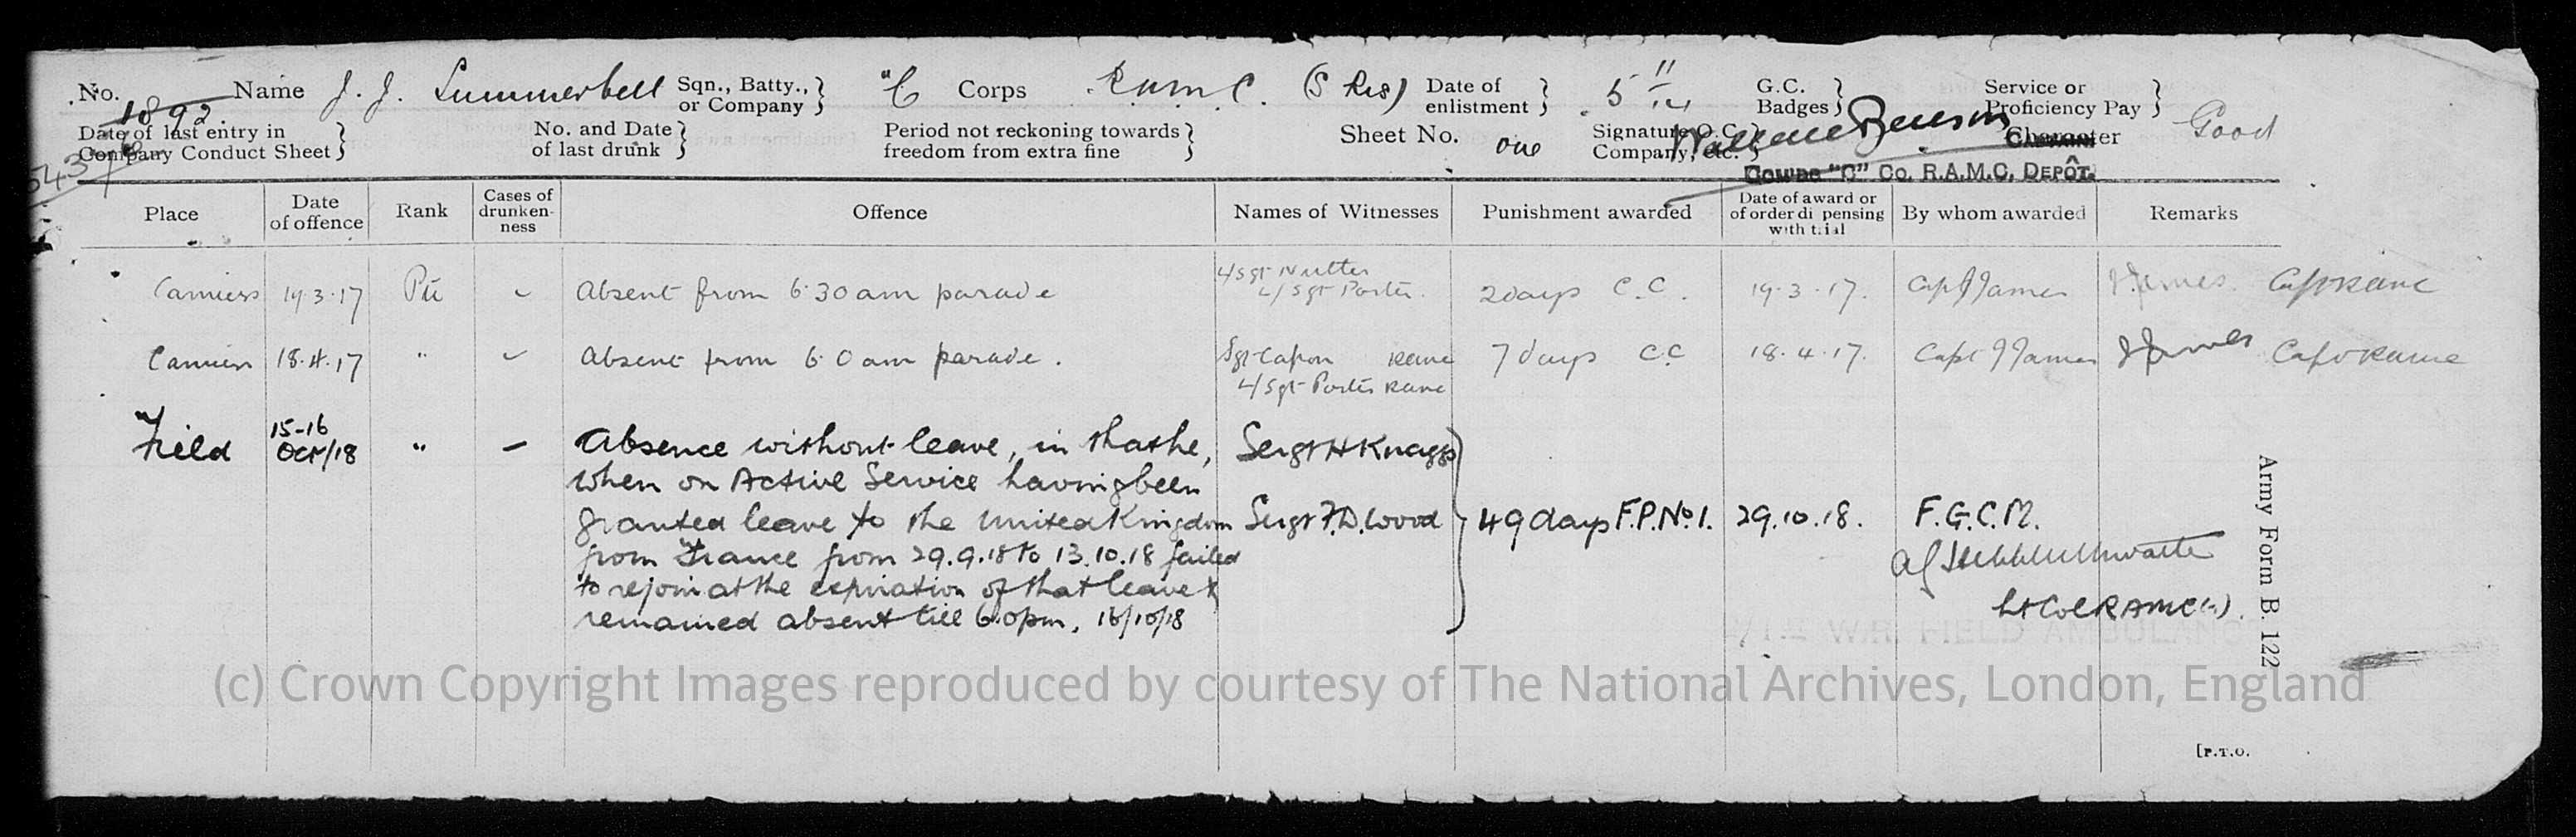 No. 1892 Name J. J. Summerbell Sqn., Batty., or Company } "C Corps R.A.M.C. (S Res) Date of enlistment } 5 11/14 G.C. Badges } Service or Proficiency Pay }
Date of last entry in Company Conduct Sheet } No. and Date of last drunk } Period not reckoning towards freedom from extra fine } Sheet No. one Signature O.C. Company, etc. } Character Good
COMDG "C" CO. R.A.M.C. DEPÔT.
Place Date of offence Rank Cases of drunken-ness Offence Names of Witnesses Punishment awarded Date of award or of order di pensing with trial By whom awarded Remarks
Camiers 19.3.17 Pte Absent from 6.30 am parade L/Sgt Nutter L/Sgt Porter. 2 days C.C. 19.3.17. Capt J James J James. Capt RAMC
Camiers 18.4.17 " Absent from 6.0 am parade. Sgt Capon RAMC 7 days C.C 18.4.17. Capt J James J James Capt RAMC
L/Sgt Porter RAMC
Field 15-16 Oct/18 " – Absence without leave, in that he, Sergt H Knaggs
when on Active Service having been
granted leave to the United Kingdom Sergt F.D. Wood } 49 days F.P. No 1. 29.10.18. F.G.C.M.
from France from 29.9.18 to 13.10.18 failed
to rejoin at the expiration of that leave &
remained absent till 6.0pm, 16/10/18
Lt Col RAMC
W.R. FIELD AMBULANC
Army Form B. 122
(c) Crown Copyright Images reproduced by courtesy of The National Archives, London, England
[P.T.O.